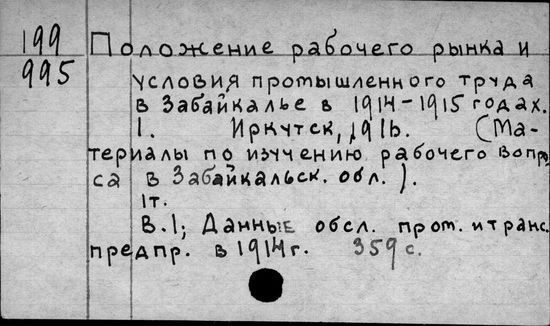 199 Положение рабочего рынка и
995 условия промышленного труда
в Забайкалье в 1914-1915 годах.
1. Иркутск, 1916. (Ма-
териалы по изучению рабочего вопро
са в Забайкальск. обл.).
1т.
В.1; Данные обсл. пром. и транс.
предпр. в 1914г. 359 с.